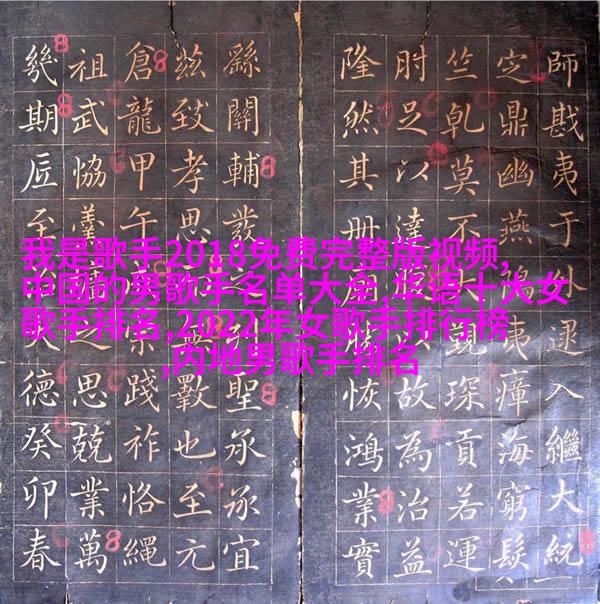 我是歌手2018免费完整版视频,
中国的男歌手名单大全,华语十大女
歌手排名,2022年女歌手排行榜
,内地男歌手排名
師戡夷于外逮入繼大統
定鼎幽燕夷瘴海窮髮
竺乾莫不覲琛貢若運
肘足以達以故為治益
隆然其冊恢鴻業實
繇關輔發列聖承承宜
茲致孝思斁也至元
倉龍甲午踐祚恪繩
祖武恊羹思兢業萬
幾期匠至德癸卯春